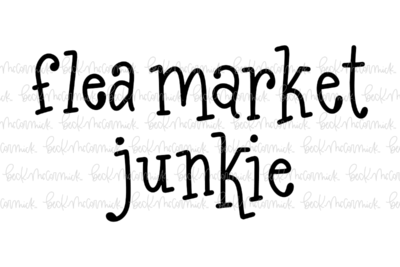 flea market
junkie